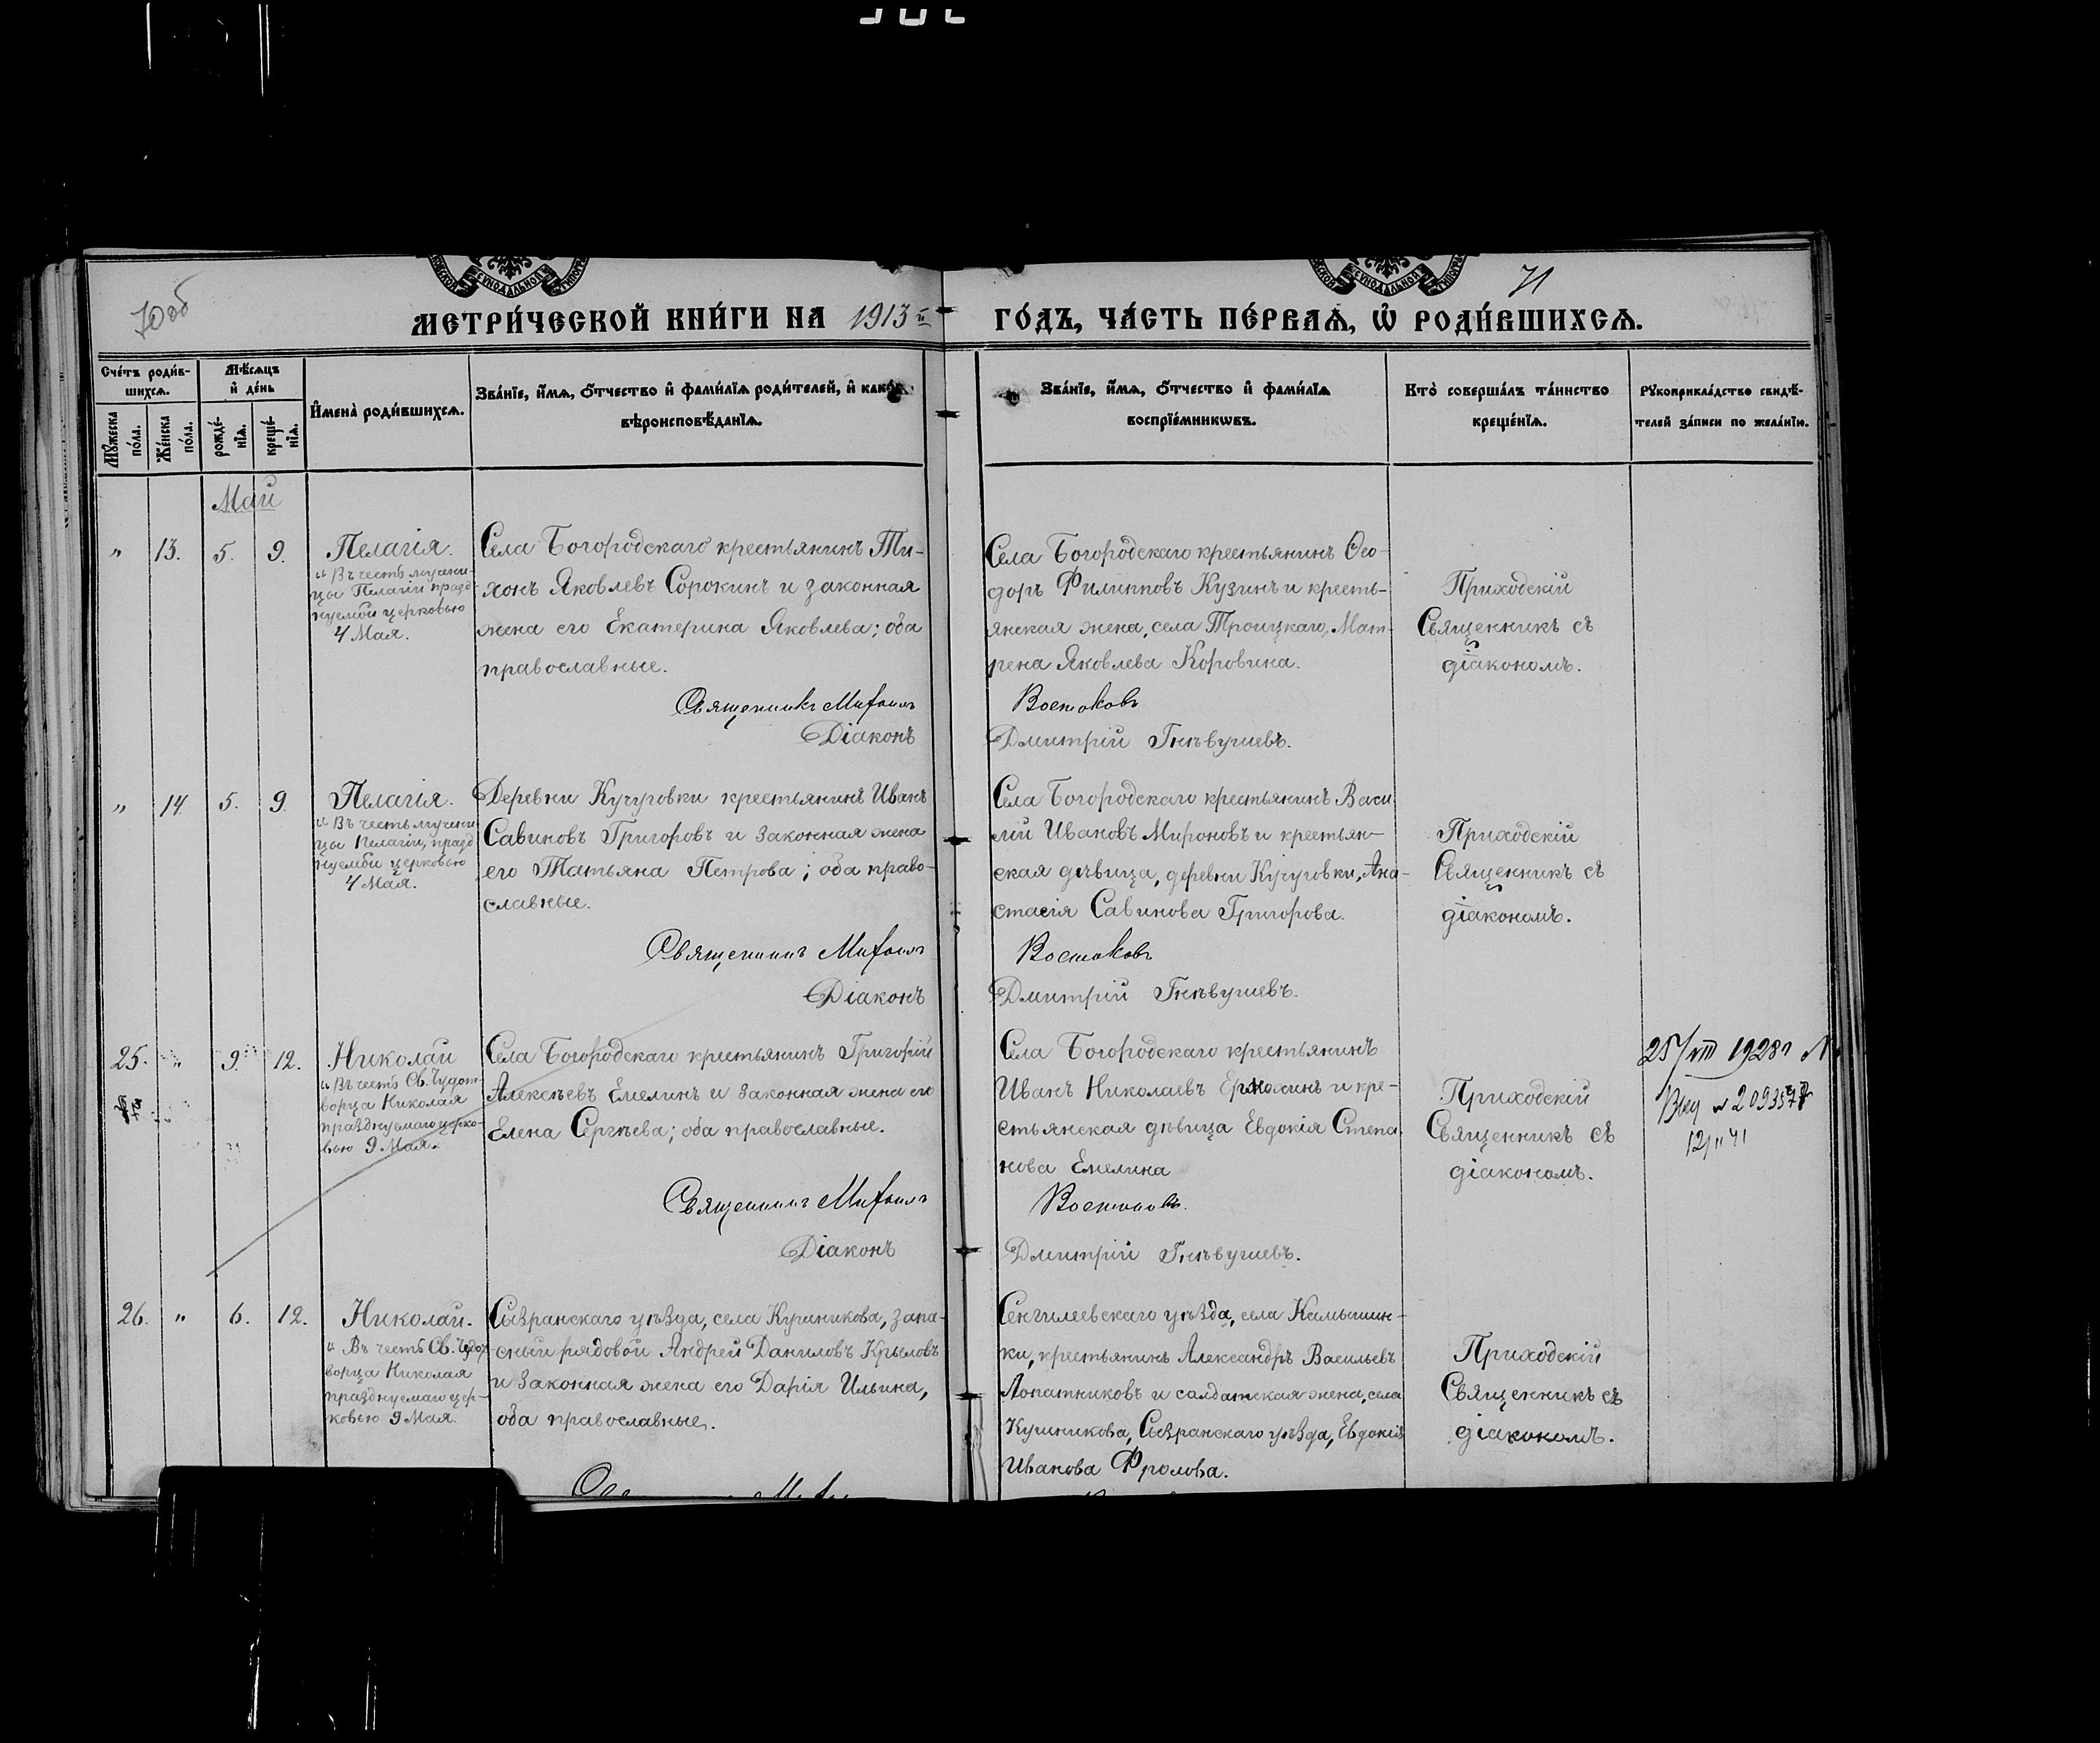 70об
71
МЕТРИ́ЧЕСКОЙ КНИ́ГИ НА 1913й
ГО́ДЪ, ЧА́СТЬ ПЕ́РВАѦ, Ѡ҆ РОДИ́ВШИХСѦ.
Сче́тъ роди́в-
шихсѧ.
Мѣ́сѧцъ
и҆ де́нь
Мꙋ́жеска
по́ла.
Же́нска
по́ла.
рожде́-
нїѧ.
креще́-
нїѧ.
И҆мена̀ роди́вшихсѧ.
Зва́нїе, и҆́мѧ, ѻ҆́тчество и҆ фами́лїѧ роди́телей, и҆ како́гѡ
вѣроисповѣ́данїѧ.
Зва́нїе, и҆́мѧ, ѻ҆́тчество и҆ фами́лїѧ
воспрїе́мникѡвъ.
Кто̀ соверша́лъ та́инство
креще́нїѧ.
Рꙋкоприкла́дство свидѣ́-
телей за́писи по жела́нїю.
Май
" 13. 5. 9.
Пелагія.
"Въ честь мучени-
цы Пелагіи празд-
нуемой церковью
4 Мая.
Села Богородскаго крестьянинъ Ти-
хонъ Яковлевъ Сорокинъ и законная
жена его Екатерина Яковлева; оба
православные.
Священникъ Михаилъ
Діаконъ
Села Богородскаго крестьянинъ Ѳео-
доръ Филипповъ Кузинъ и кресть-
янская жена, села Троицкаго, Мат-
рена Яковлева Коровина.
Востоковъ
Дмитрій Гнѣвушевъ.
Приходскій
Священникъ съ
діакономъ.
" 14 5. 9.
Пелагія.
"Въ честь мучени
цы Пелагіи, празд
нуемой церковью
4 Мая.
Деревни Кучуровки крестьянинъ Иванъ
Савиновъ Григоровъ и законная жена
его Татьяна Петрова; оба право-
славные.
Священникъ Михаилъ
Діаконъ
Села Богородскаго крестьянинъ Васи
лій Ивановъ Мироновъ и крестьян-
ская дѣвица, деревни Кучуровки, Ана-
стасія Савинова Григорова.
Востоковъ
Дмитрій Гнѣвушевъ.
Приходскій
Священникъ съ
діакономъ.
25. " 9. 12.
Николай
"Въ честь Св. Чудот-
ворца Николая
празднуемаго церко-
вью 9 Мая.
Села Богородскаго крестьянинъ Григорій
Алексѣевъ Емелинъ и законная жена его
Елена Сергѣева; оба православные.
Священникъ Михаилъ
Діаконъ
Села Богородскаго крестьянинъ
Иванъ Николаевъ Ермохинъ и кре-
стьянская дѣвица Евдокія Степа
нова Емелина
Востоковъ.
Дмитрій Гнѣвушевъ.
Приходскій
Священникъ съ
діакономъ.
25/VIII 1928г
12/II 41
26. " 6. 12.
Николай.
"Въ честь Св. Чудот
ворца Николая
празднуемаго цер-
ковью 9 Мая.
Сызранскаго уѣзда, села Кушникова, запа-
сный рядовой Андрей Даниловъ Крыловъ
и законная жена его Дарія Ильина,
оба православные.
Сенгилеевскаго уѣзда, села Камышин-
ки, крестьянинъ Александръ Васильевъ
Лопатниковъ и салдатская жена, села
Кушникова, Сызранскаго уѣзда, Евдокія
Иванова Фролова.
Приходскій
Священникъ съ
діакономъ.